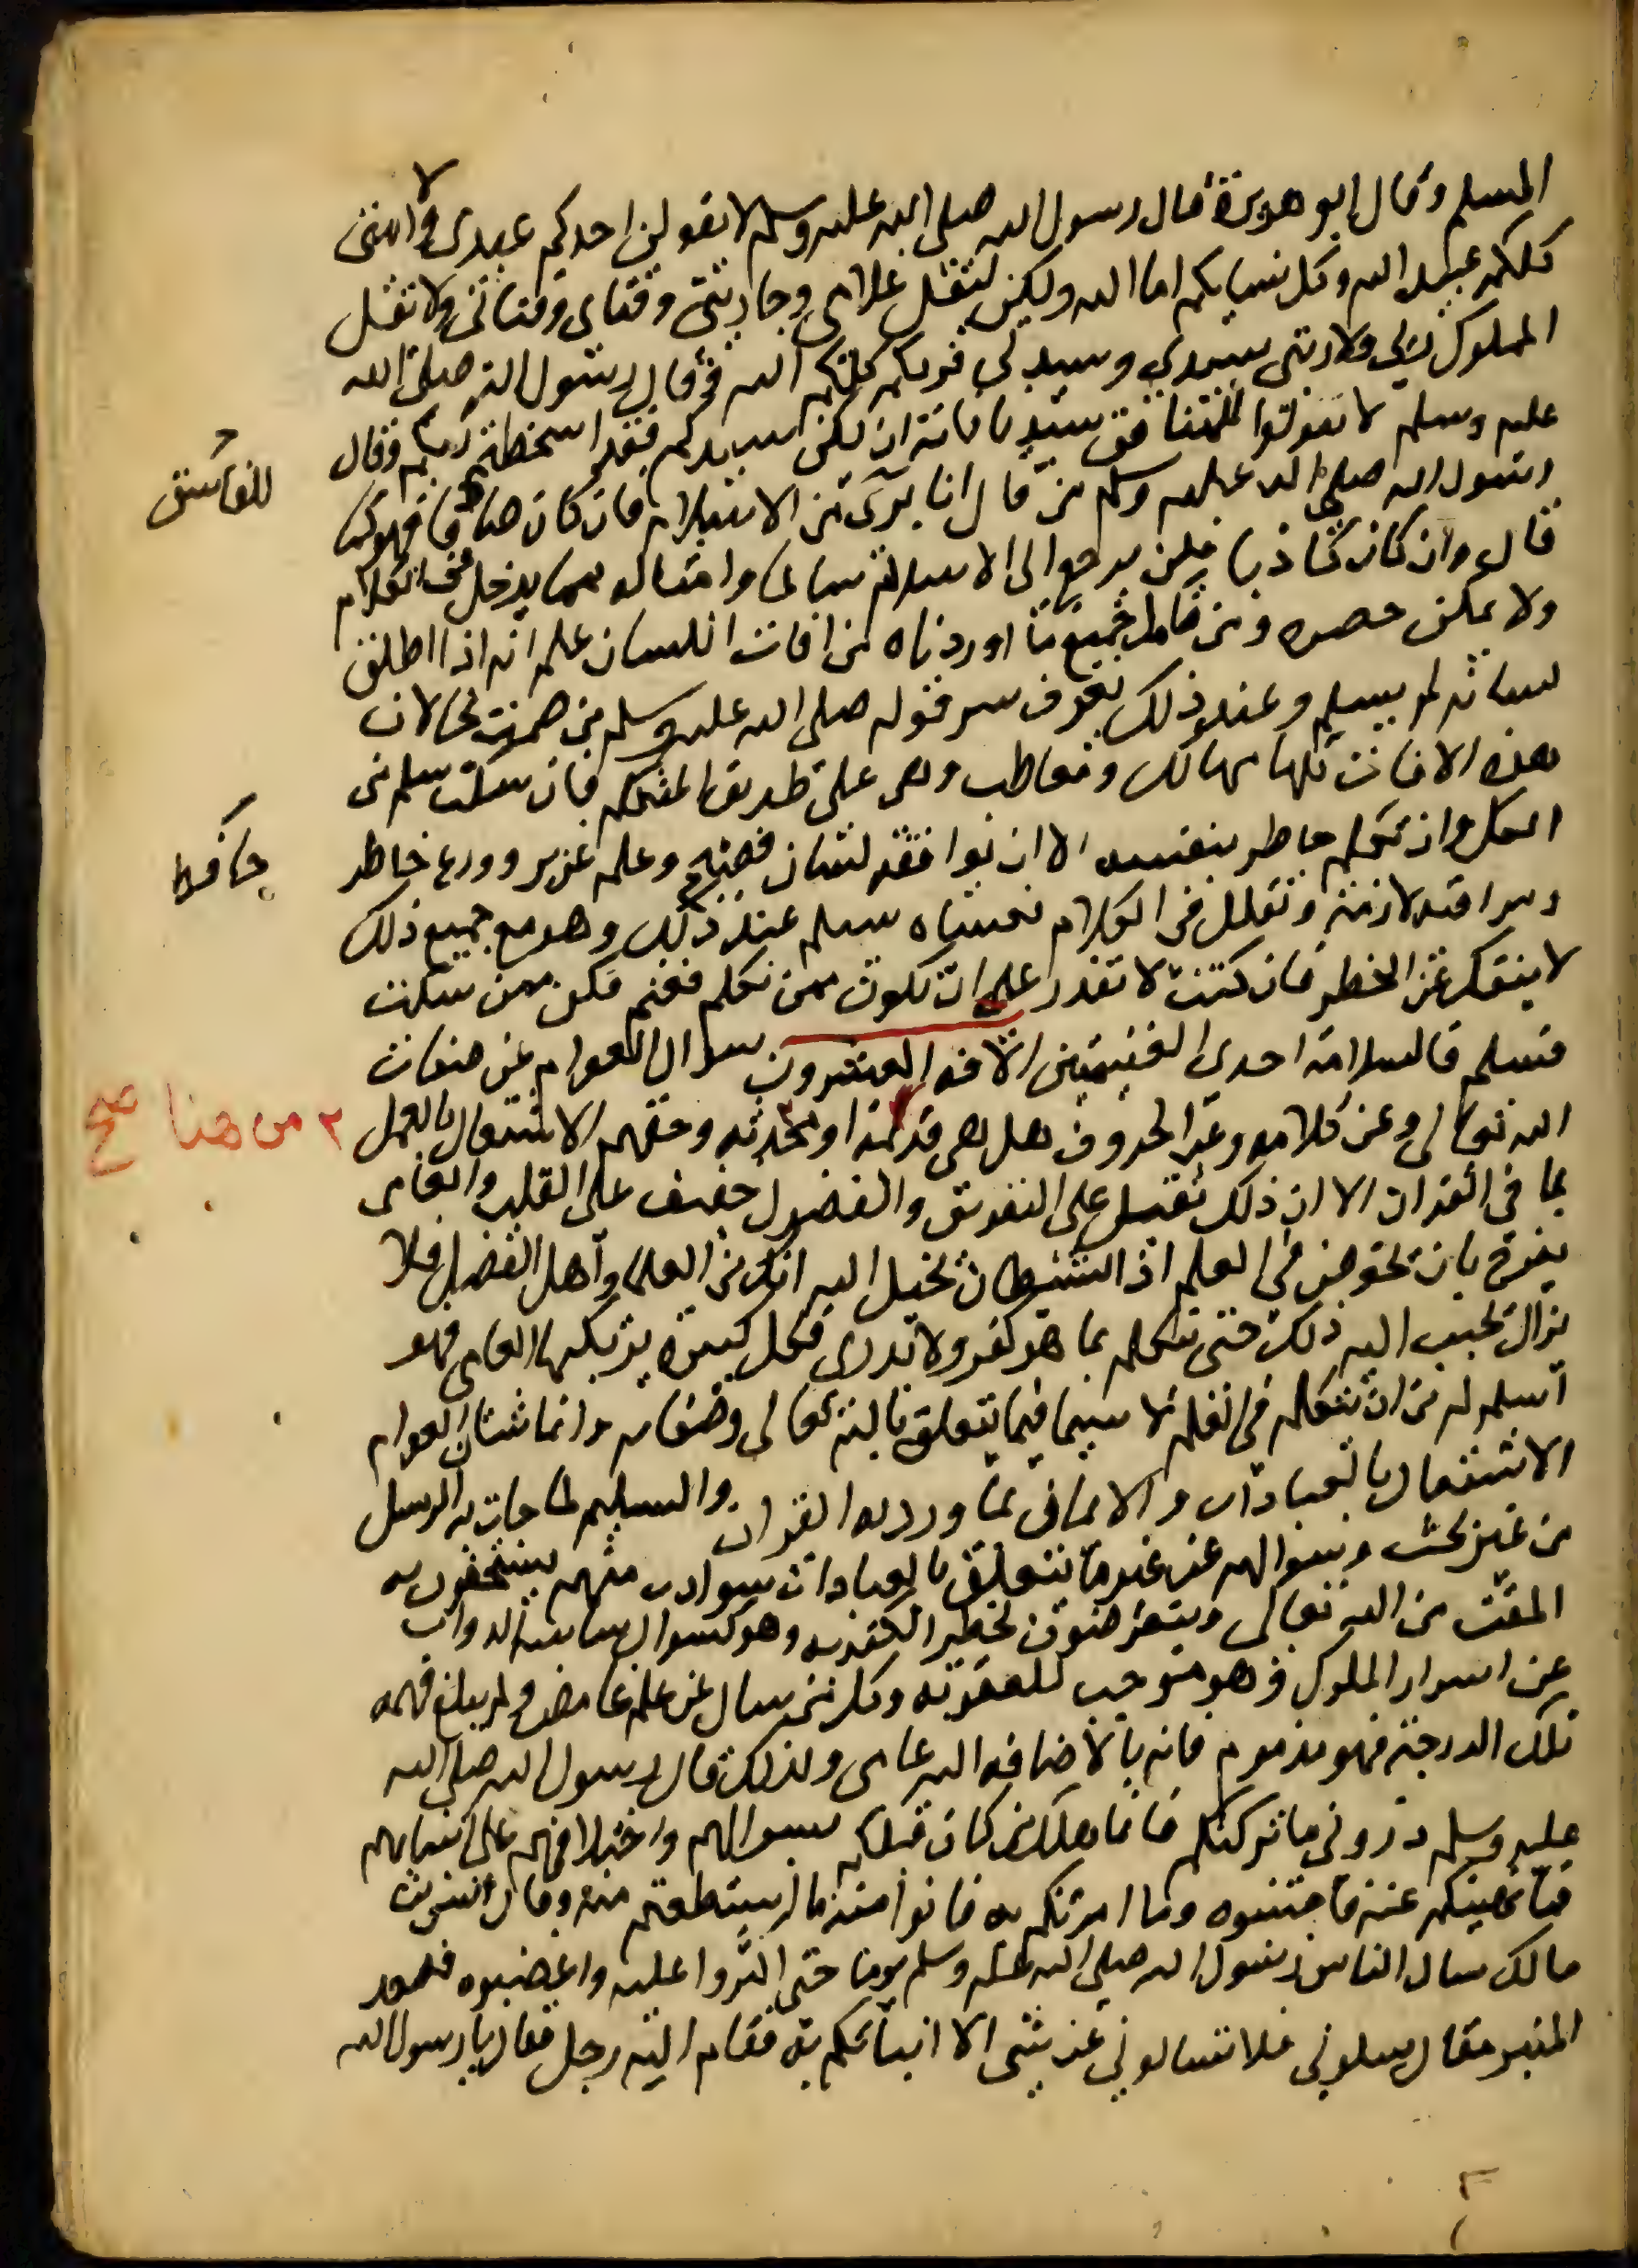 المسلم وقال ابو هريرة قال رسول الله صلى الله عليه وسلم لا يقولن احدكم عبدي ولا امتي
كلكم عبيد الله وكل نسايكم اما الله وليكن ليقل غلامي وجاريتي وفتاي وفتاتي ولا يقل
المملوك ربي ولا ربتي سيدي وسيدتي فربكم كلكم الله وقال رسول الله صلى الله
عليه وسلم لا تقولوا للمنافق سيدنا فانه ان يكن سيدكم فقد اسخطتم ربكم وقال
للفاسق
رسول الله صلى الله عليه وسلم من قال انا بري من الاسلام فان كان صادقا فهو كما
قال وان كان كاذبا فلن يرجع الى الاسلام سالما وامثاله مما يدخل في الكلام
ولا يمكن حصره ومن تامل جميع ما اوردناه من افات اللسان علم انه اذا اطلق
لسانه لم يسلم وعند ذلك يعرف سر قوله صلى الله عليه وسلم من صمت نجا لان
هذه الافات كلها مهالك ومعاطب وهي على طريق المتكلم فان سكت سلم من
الكل وان تكلم خاطر بنفسه الا ان يوافقه لسان فصيح وعلم غزير وورع حاظر
حافظ
ومراقبه لازمة وتقلل من الكلام فعساه يسلم عند ذلك وهو مع جميع ذلك
لا ينفك عن الخطر فان كنت لا تقدر على ان تكون ممن تكلم فغنم فكن ممن سكت
فسلم فالسلامة احدى الغنيمتين الافه العشرون سوال العوام عن صفات
الله تعالى وعن كلامه وعن الحروف هل هي قديمة او محدثه وحقهم الاشتغال بالعمل
٢ من هنا صح
بما في القران الا ان ذلك ثقيل على النفوس والفضول خفيف على القلب والعامي
يفرح بان يخوض في العلم اذ الشيطان يخيل اليه انك من العلما واهل الفضل ولا
يزال يحبب اليه ذلك حتى يتكلم بما هو كفر ولا يدري فكل كبيرة يرتكبها العامي فهو
اسلم له من ان يتكلم في العلم لا سيما فيما يتعلق بالله تعالى وصفاته وانما شان العوام
الاشتغال بالعبادات والايمان بما ورد به القران والتسليم لما جات به الرسل
من غير بحث وسوالهم عن غير ما يتعلق بالعبادات سو ادب منهم يستحقون به
المقت من الله تعالى ويتعرضون لخطر الكفر به وهو كسوال ساسة الدواب
عن اسرار الملوك وهو موجب للعقوبه وكل من سال عن علم غامض ولم يبلغ فهمه
تلك الدرجة فهو مذموم فانه بالاضافه اليه عامي ولذلك قال رسول الله صلى الله
عليه وسلم ذروني ما تركتكم فانما هلك من كان قبلكم بسوالهم واختلافهم على انبيايهم
فما نهيتكم عنه فاجتنبوه وما امرتكم به فاتوا منه ما استطعتم منه وقال انس بن
مالك سال الناس رسول الله صلى الله عليه وسلم يوما حتى اكثروا عليه واغضبوه فصعد
المنبر فقال سلوني فلا تسالوني عن شي الا انباتكم به فقام اليه رجل فقال يا رسول الله